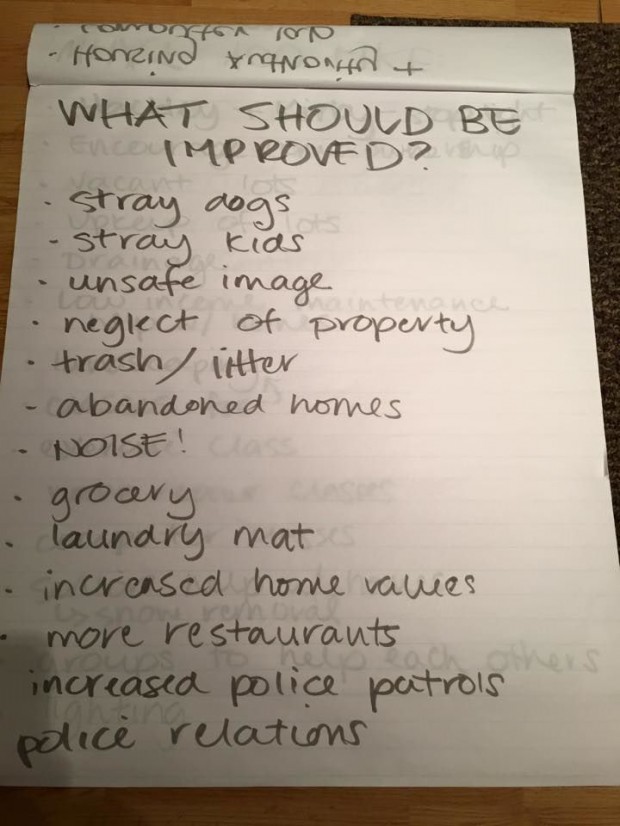 WHAT SHOULD BE
IMPROVED?
· stray dogs
- stray kids
· unsafe image
· neglect of property
· trash/litter
- abandoned homes
· NOISE!
· grocery
· laundry mat
· increased home values
· more restaurants
increased police patrols
police relations